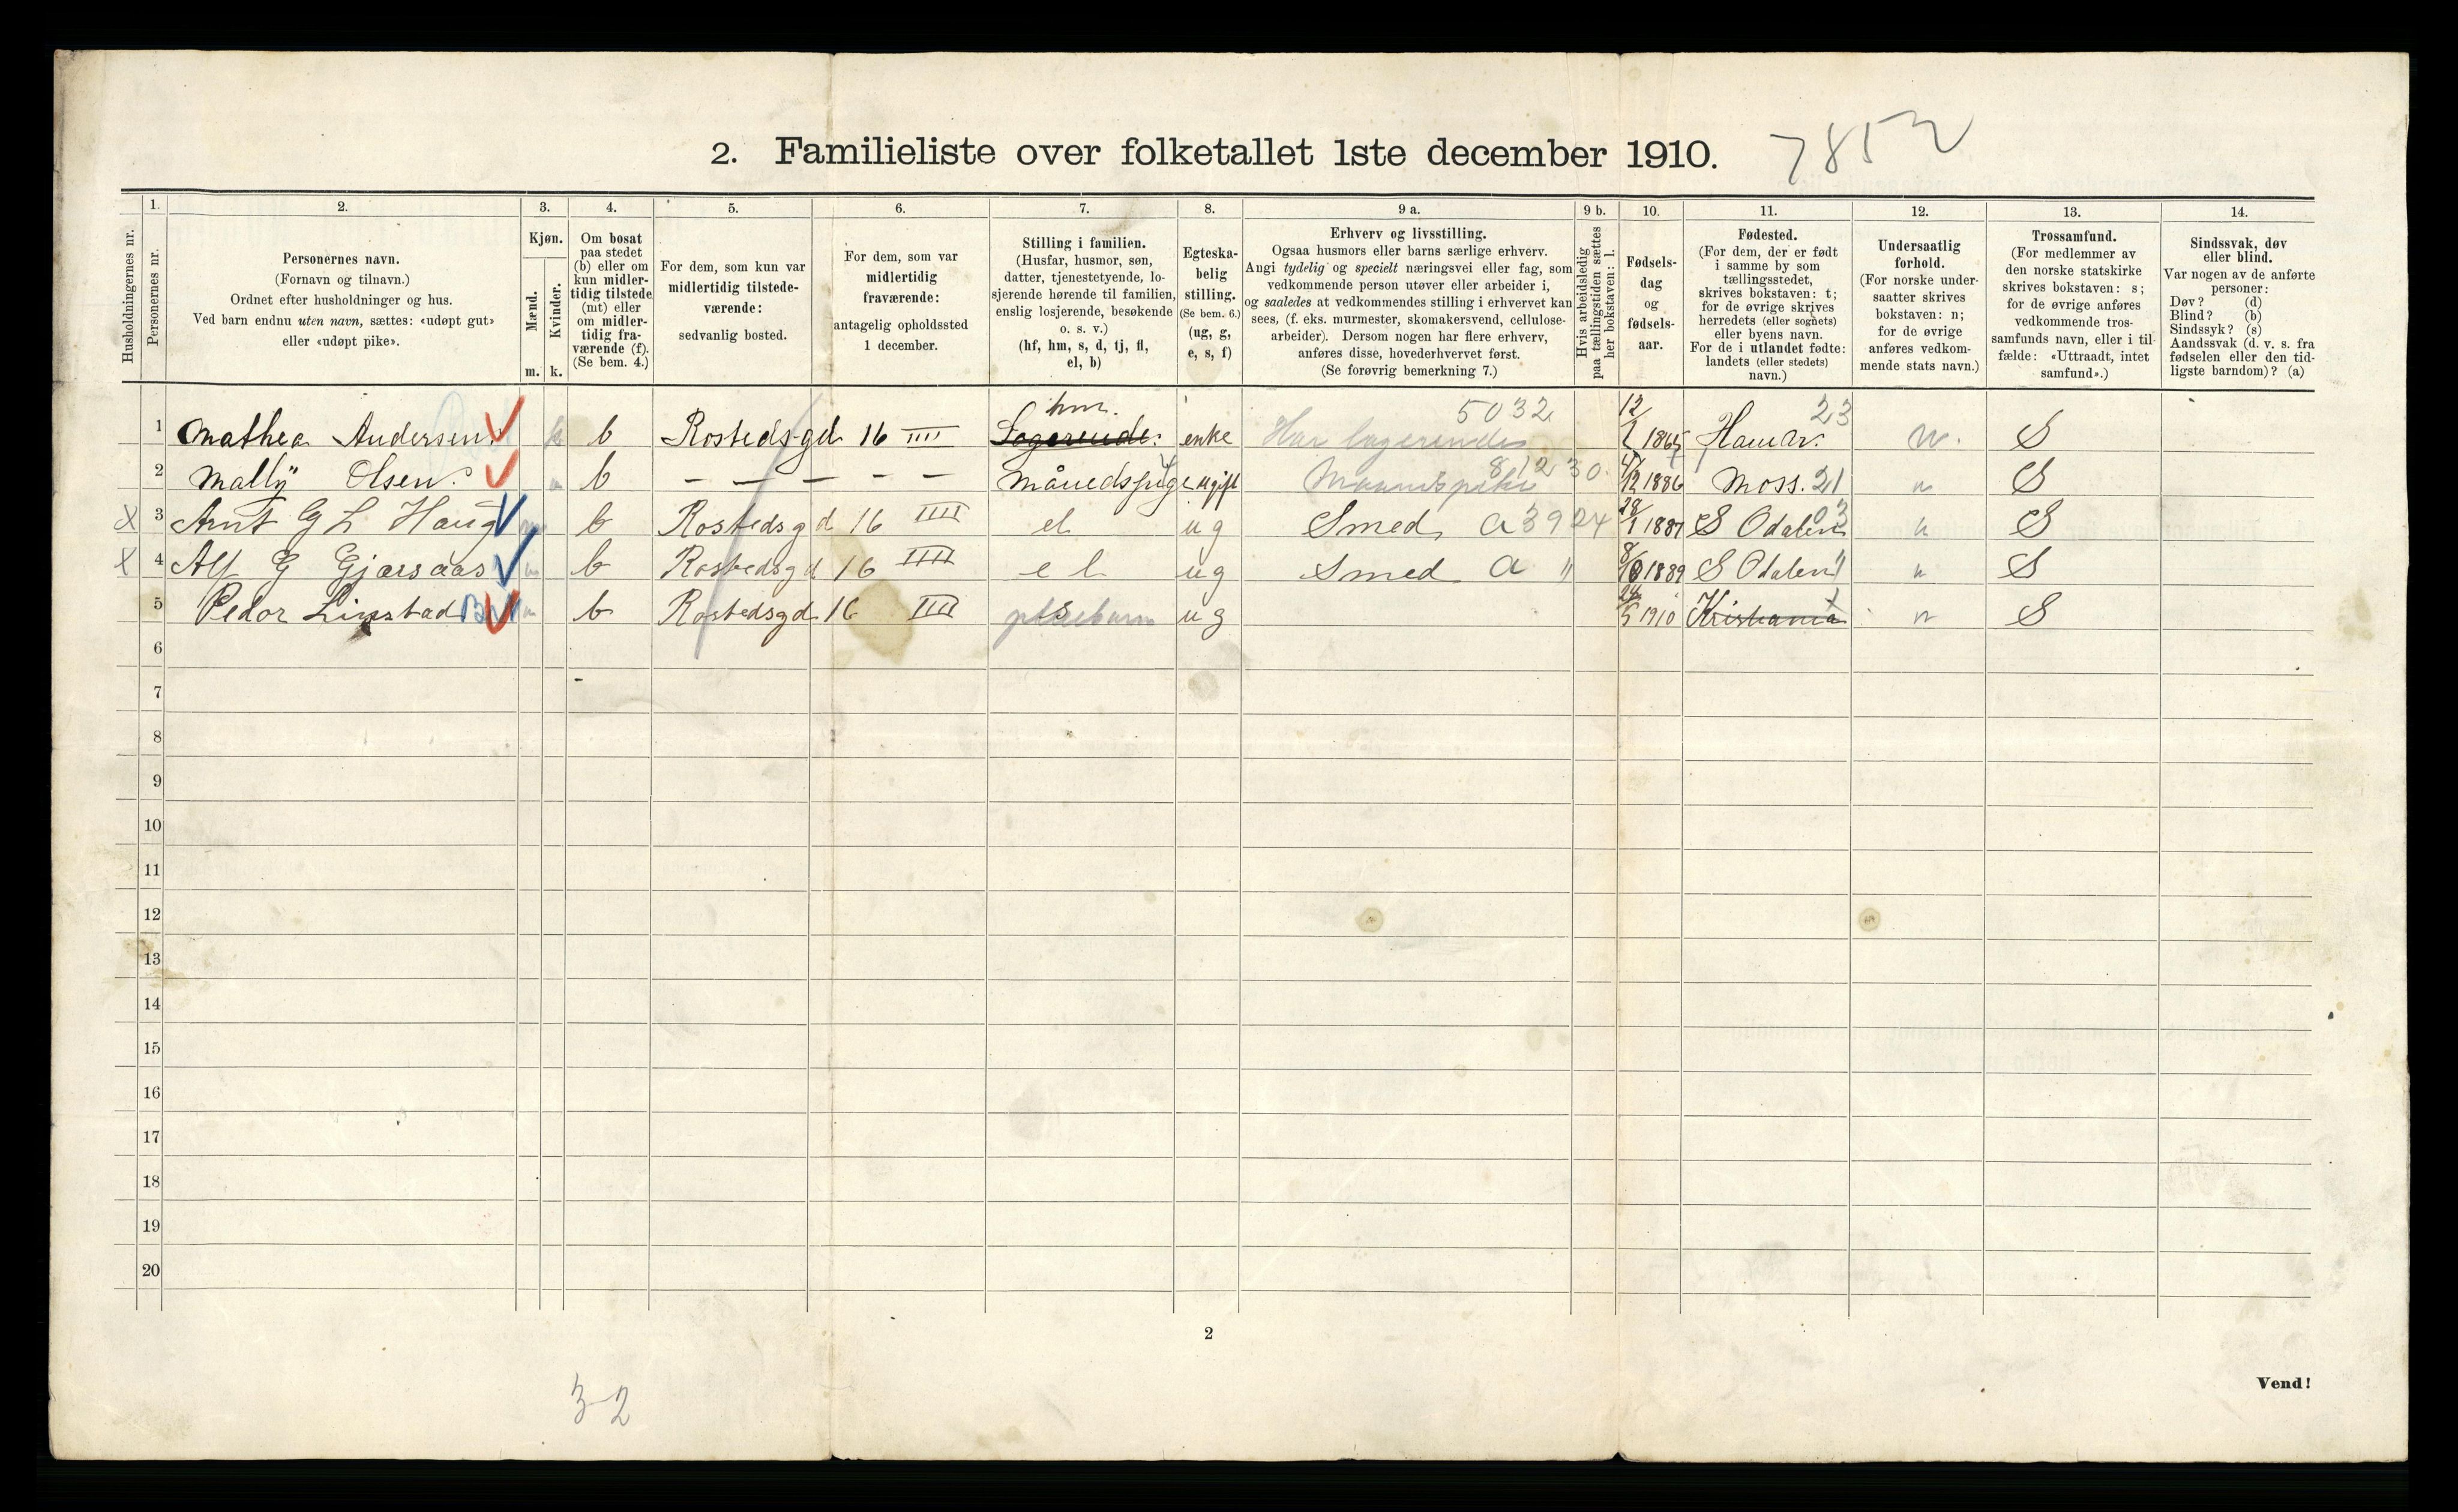 2. Familieliste over folketallet 1ste december 1910. 7852
Husholdningernes nr.
1. Personernes nr.
2. Personernes navn.
(Fornavn og tilnavn.)
Ordnet efter husholdninger og hus.
Ved barn endnu uten navn, sættes: «udøpt gut»
eller «udøpt pike».
3. Kjøn.
Mænd. m.
Kvinder. k.
4. Om bosat
paa stedet
(b) eller om
kun midler-
tidig tilstede
(mt) eller
om midler-
tidig fra-
værende (f).
(Se bem. 4.)
5. For dem, som kun var
midlertidig tilstede-
værende:
sedvanlig bosted.
6. For dem, som var
midlertidig
fraværende:
antagelig opholdssted
1 december.
7. Stilling i familien.
(Husfar, husmor, søn,
datter, tjenestetyende, lo-
sjerende hørende til familien,
enslig losjerende, besøkende
o. s. v.)
(hf, hm, s, d, tj, fl,
el, b)
8. Egteska-
belig
stilling.
(Se bem. 6.)
(ug, g,
e, s, f)
9 a. Erhverv og livsstilling.
Ogsaa husmors eller barns særlige erhverv.
Angi tydelig og specielt næringsvei eller fag, som
vedkommende person utøver eller arbeider i,
og saaledes at vedkommendes stilling i erhvervet kan
sees, (f. eks. murmester, skomakersvend, cellulose-
arbeider). Dersom nogen har flere erhverv,
anføres disse, hovederhvervet først.
(Se forøvrig bemerkning 7.)
9 b. Hvis arbeidsledig
paa tællingstiden sættes
her bokstaven: l.
10. Fødsels-
dag
og
fødsels-
aar.
11. Fødested.
(For dem, der er født
i samme by som
tællingsstedet,
skrives bokstaven: t;
for de øvrige skrives
herredets (eller sognets)
eller byens navn.
For de i utlandet fødte:
landets (eller stedets)
navn.)
12. Undersaatlig
forhold.
(For norske under-
saatter skrives
bokstaven: n;
for de øvrige
anføres vedkom-
mende stats navn.)
13. Trossamfund.
(For medlemmer av
den norske statskirke
skrives bokstaven: s;
for de øvrige anføres
vedkommende tros-
samfunds navn, eller i til-
fælde: «Uttraadt, intet
samfund».)
14. Sindssvak, døv
eller blind.
Var nogen av de anførte
personer:
Døv? (d)
Blind? (b)
Sindssyk? (s)
Aandssvak (d. v. s. fra
fødselen eller den tid-
ligste barndom)? (a)
1 Mathea Andersen. k b Rosteds-gd 16 IIII Logerende. hm. enke Har logerende 5032 12/2 1865 Hamar. 23 n. S
2 Mally Olsen. b - - - - - månedspige ugift Maanedspike 81230 4/12 1886 Moss. 21 n S
x 3 Arnt G L Haug b Rostedsgd 16 IIII el ug Smed a 3924 28/1 1887 S Odalen 03 n S
x 4 Alf G Gjærsaas b Rostedsgd 16 IIII el ug Smed a " 1889 S Odalen " n S
5 Pedor Linstad b Rostedsgd 16 IIII pleiebarn ug 1910 Kristiania n S
6
7
8
9
10
11
12
13
14
15
16
17
18
19
20
2
Vend!
32